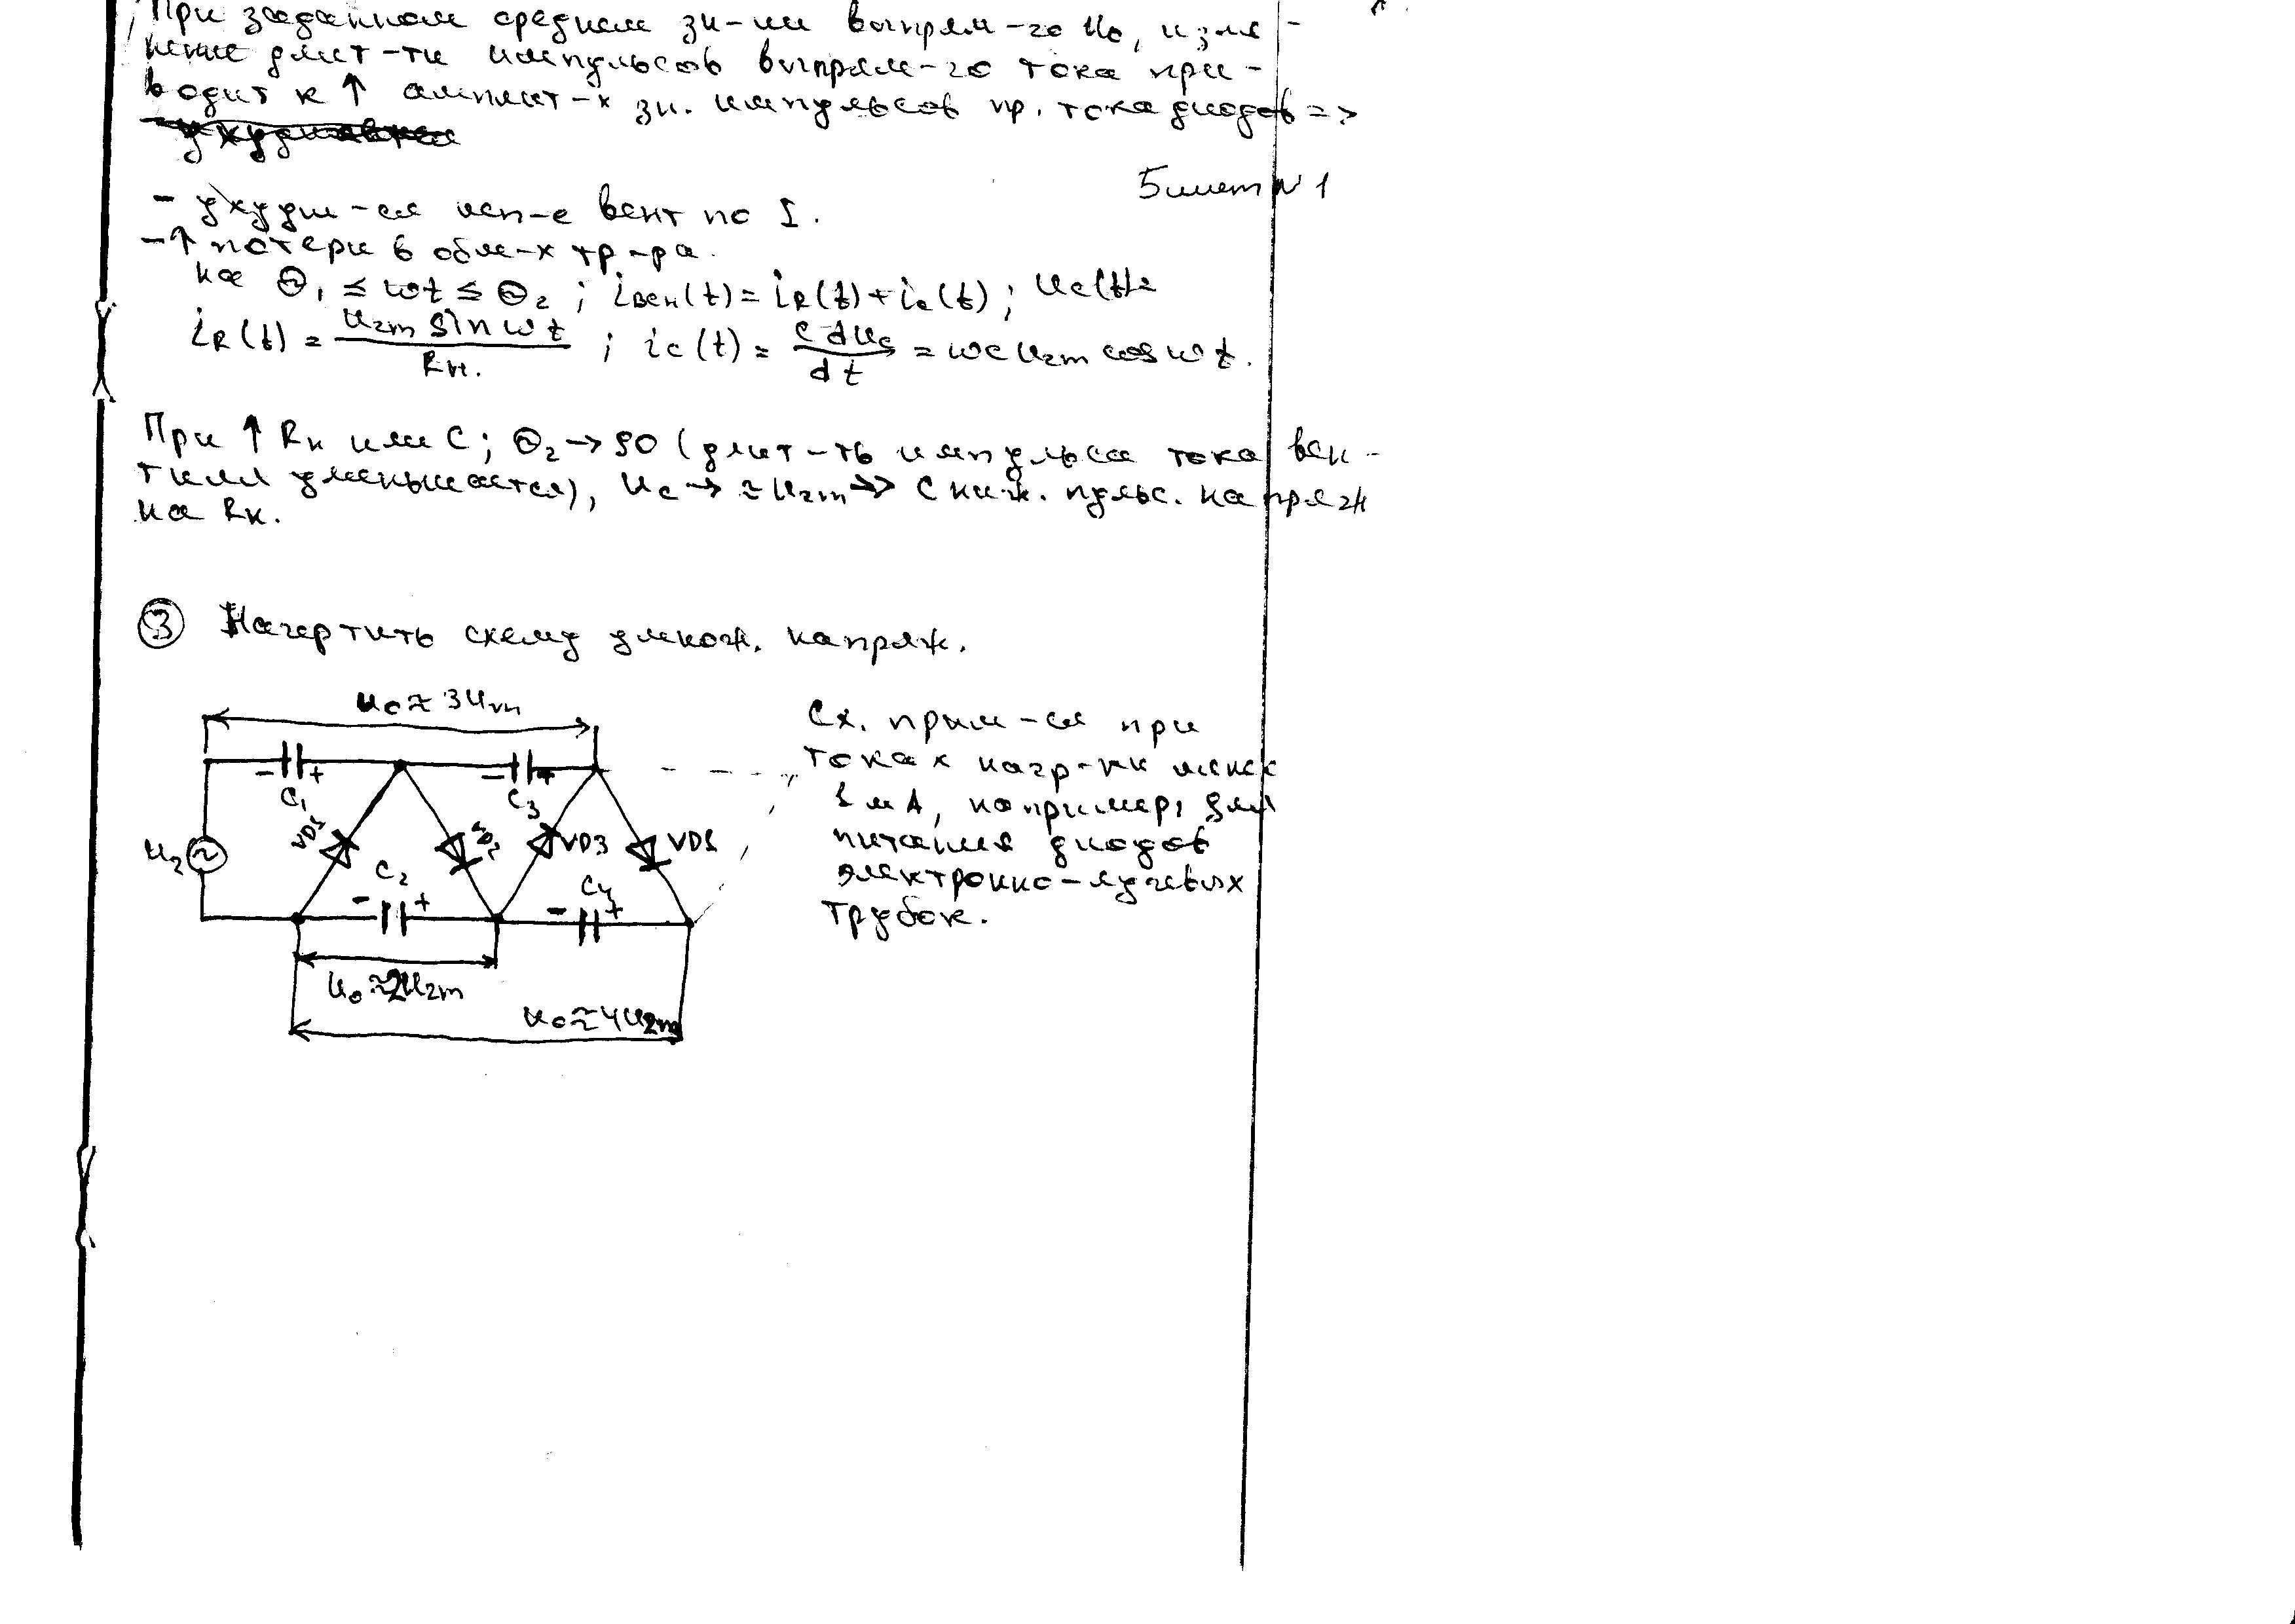 При заданном среднем зн-ии выпрям-го U₀, изме-
нение длит-ти импульсов выпрям-го тока при-
водит к ↑ амплит-х зн. импульсов пр. тока диодов =>
Билет №1
- ухудш-ся исп-е вент по I.
-↑ потери в обм-х тр-ра.
на Θ₁ ≤ ωt ≤ Θ₂ ; iвен(t) = iR(t) + ic(t) ; Uc(t)=
iR(t) = U₂m sin ωt / Rн. ; ic(t) = C dUc / dt = ωC U₂m cos ωt.
При ↑ Rн или C ; Θ₂ → 90 (длит-ть импульса тока вен-
тиля уменьшается), Uc → ≈ U₂m => сниж. пульс. напряж
на Rн.
③ Начертить схему умнож. напряж.
U₀ ≈ 3Um
- + C₁
- + C₃
U₂ ~
VD1
VD2
VD3
VD1
C₂ - +
C₄ - +
U₀ ≈ 2U₂m
U₀ ≈ 4U₂m
Сх. прим-ся при
токах нагр-ки менее
1 мА, например, для
питания диодов
электронно-лучевых
трубок.